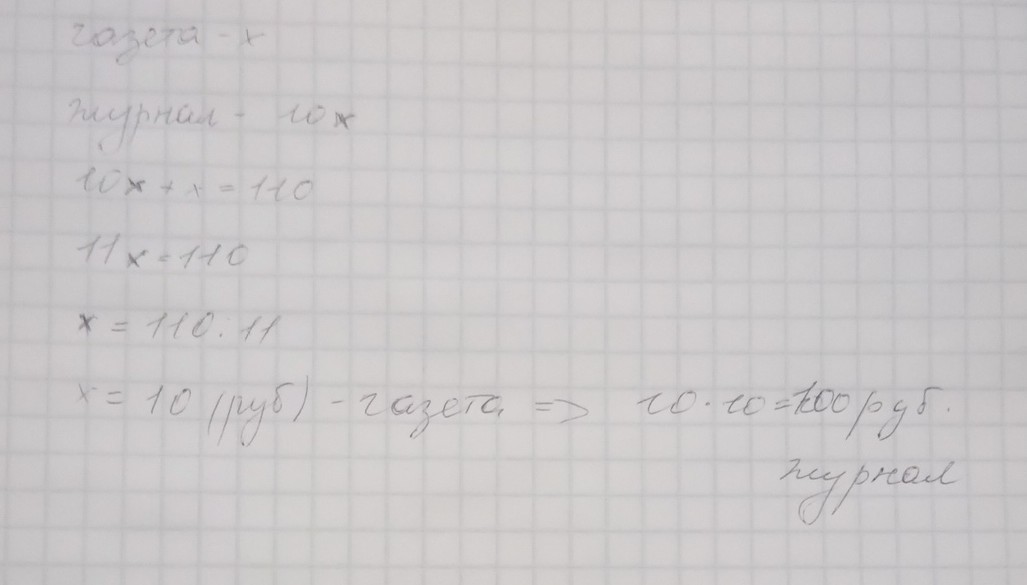 газета - x
журнал - 10x
10x + x = 110
11x = 110
x = 110 : 11
x = 10 (руб) - газета => 10 · 10 = 100 руб.
журнал